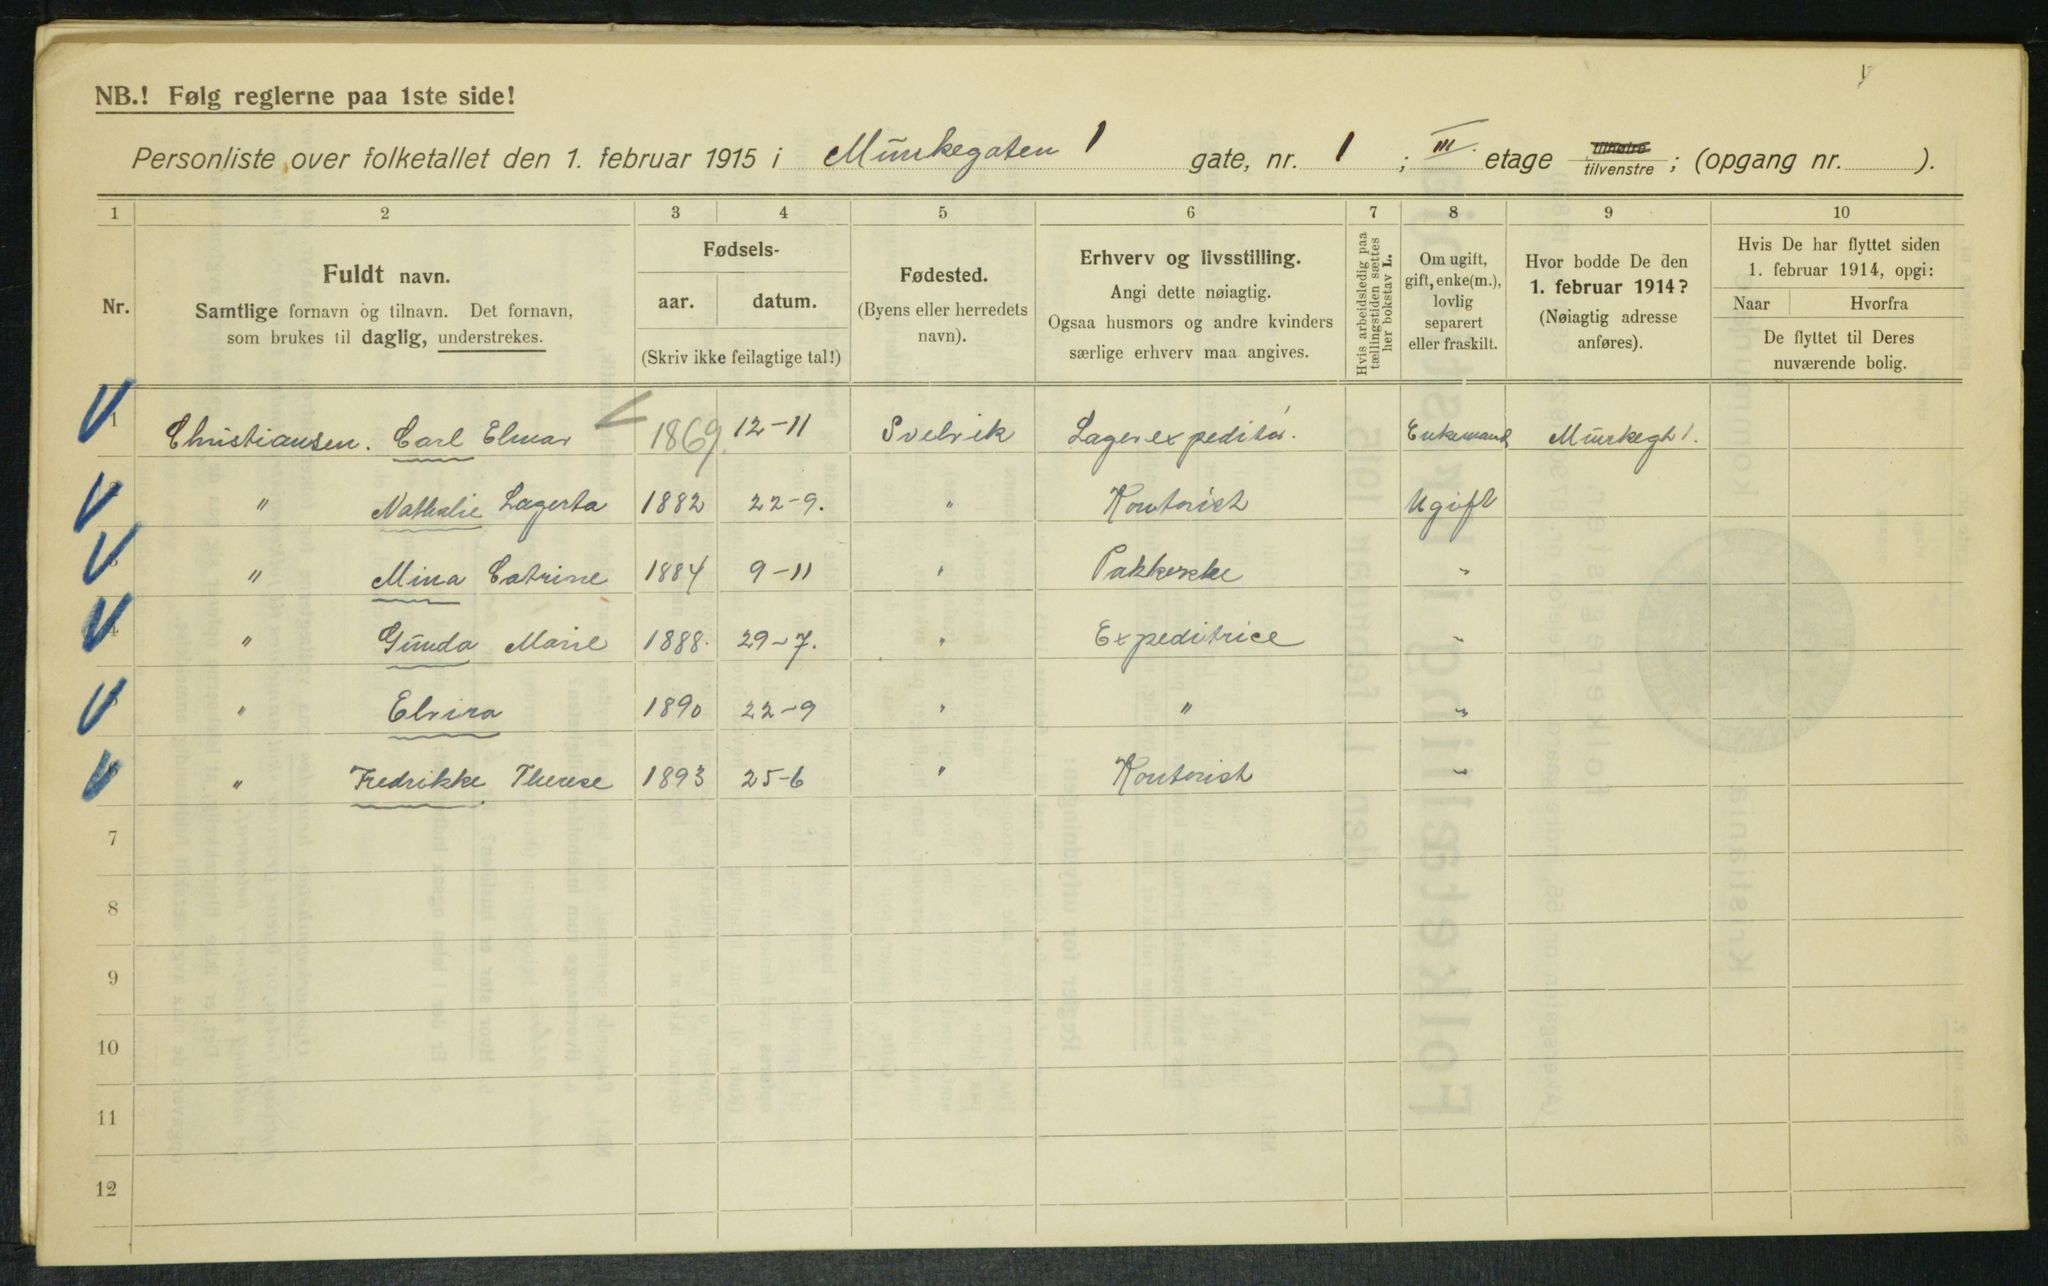 NB.! Følg reglerne paa 1ste side!
Personliste over folketallet den 1. februar 1915 i Munkegaten 1 gate, nr. 1 ; III. etage tilhøire tilvenstre ; (opgang nr. ).
1 2 3 4 5 6 7 8 9 10
Nr.
Fuldt navn.
Samtlige fornavn og tilnavn. Det fornavn,
som brukes til daglig, understrekes.
Fødsels-
aar. datum.
(Skriv ikke feilagtige tal!)
Fødested.
(Byens eller herredets
navn).
Erhverv og livsstilling.
Angi dette nøiagtig.
Ogsaa husmors og andre kvinders
særlige erhverv maa angives.
Hvis arbeidsledig paa
tællingstiden sættes
her bokstav L.
Om ugift,
gift, enke(m.),
lovlig
separert
eller fraskilt.
Hvor bodde De den
1. februar 1914?
(Nøiagtig adresse
anføres).
Hvis De har flyttet siden
1. februar 1914, opgi:
Naar Hvorfra
De flyttet til Deres
nuværende bolig.
1 Christiansen. Carl Elmar 1869. 12-11 Svelvik Lagerexpeditør. Enkemand Munkegt 1.
2 " Nathalie Lagerta 1882 22-9. " Kontorist Ugift
3 " Mina Catrine 1884 9-11 " Pakkerske "
4 " Gunda Marie 1888. 29-7. " Expeditrice "
5 " Elvira 1890 22-9 " " "
6 " Fredrikke Therese 1893 25-6 " Kontorist "
7
8
9
10
11
12